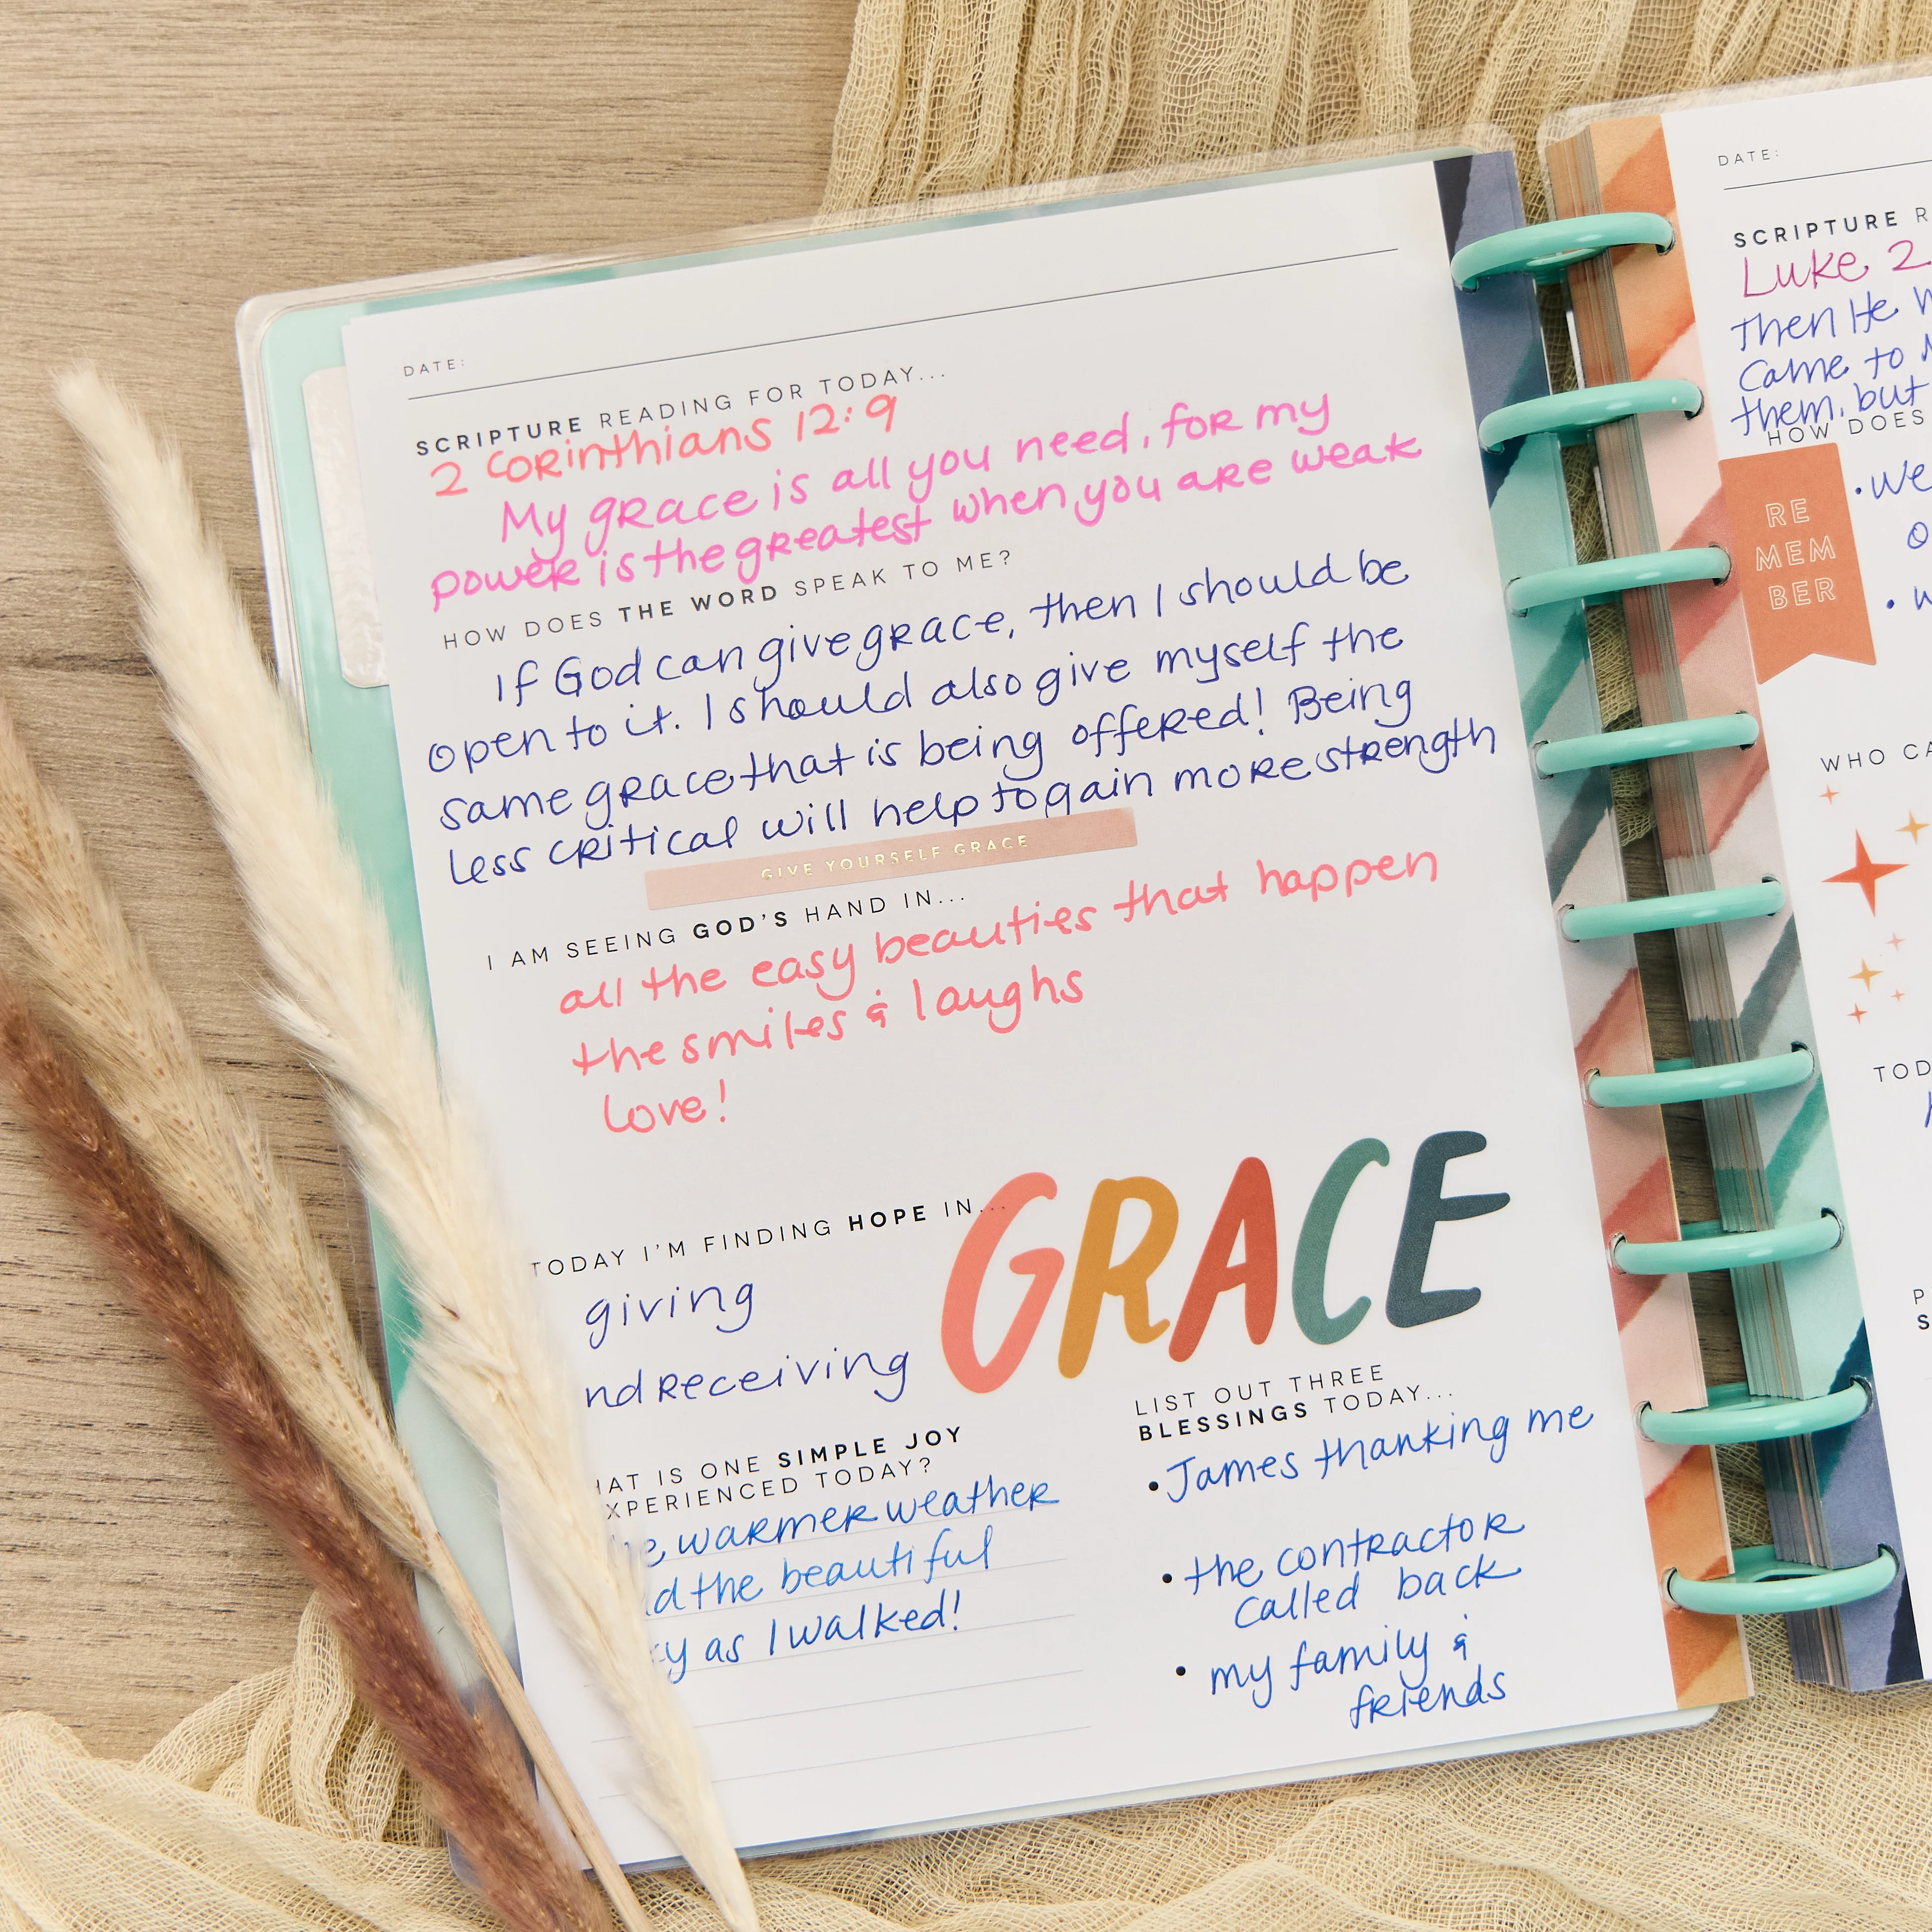 DATE:
SCRIPTURE READING FOR TODAY...
2 Corinthians 12:9
My grace is all you need, for my
power is the greatest when you are weak
HOW DOES THE WORD SPEAK TO ME?
If God can give grace, then I should be
open to it. I should also give myself the
same grace that is being offered! Being
less critical will help to gain more strength
GIVE YOURSELF GRACE
I AM SEEING GOD'S HAND IN...
all the easy beauties that happen
the smiles & laughs
love!
TODAY I'M FINDING HOPE IN...
giving
nd receiving
GRACE
HAT IS ONE SIMPLE JOY
XPERIENCED TODAY?
e warmer weather
d the beautiful
y as I walked!
LIST OUT THREE
BLESSINGS TODAY...
• James thanking me
• the contractor
called back
• my family &
friends
DATE:
SCRIPTURE R
Luke 2
Then He w
came to
them, but
HOW DOES
RE
MEM
BER
• We
o
• w
WHO CA
TOD
P
S